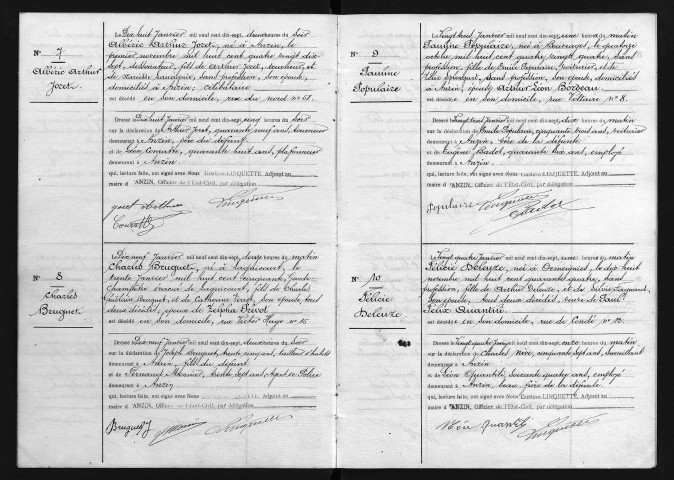 N° 7
Albéric Arthur
Joret
Le Dix huit Janvier mil neuf cent dix-sept, deux heures du soir
Albéric Arthur Joret, né à Anzin, le
premier novembre mil huit cent quatre vingt dix
sept, dessinateur, fils de Arthur Joret, et
de sans profession, son épouse,
domiciliés à Anzin; célibataire
est décédé en son domicile, rue du nord n° 58.
Dressé le Dix huit Janvier mil neuf cent dix-sept, cinq heures du soir
sur la déclaration de Arthur Joret, quarante neuf ans,
demeurant à Anzin, père du défunt
et de Léon quarante huit ans, plafonneur
demeurant à Anzin
qui, lecture faite, ont signé avec Nous Gustave LINQUETTE, Adjoint au
maire d'ANZIN, Officier de l'Etat-Civil, par délégation
Joret Arthur Linquette
N° 8
Charles
Bruguet
Le Dix neuf Janvier mil neuf cent dix-sept, douze heures du matin
Charles Bruguet, né à Lagnicourt, le
trente Janvier mil huit cent cinquante, Garde-
champêtre évacué de Lagnicourt, fils de Charles
Ghislain Bruguet, et de Catherine Joret, son épouse, tous
deux décédés, époux de Zelpha Prévot
est décédé en son domicile, rue Victor Hugo n° 15
Dressé le Dix neuf Janvier mil neuf cent dix-sept, deux heures du soir
sur la déclaration de Joseph Bruguet, trente cinq ans, tailleur d'habits
demeurant à Anzin, fils du défunt
et de Fernand trente sept ans, agent de Police
demeurant à Anzin
qui, lecture faite, ont signé avec Nous Gustave LINQUETTE, Adjoint au
maire d'ANZIN, Officier de l'Etat-Civil, par délégation
Bruguet J Linquette
N° 9
Pauline
Populaire
Le Vingt huit Janvier mil neuf cent dix-sept, onze heures du matin
Pauline Populaire, née à le quatorze
octobre mil huit cent quatre vingt quatre, sans
profession, fille de Emile Populaire, et de
sans profession, son épouse, domiciliés
à Anzin, épouse Arthur Léon Bordeau
est décédée en son domicile, rue Voltaire n° 8.
Dressé le Vingt huit Janvier mil neuf cent dix-sept, heures du matin
sur la déclaration de Emile Populaire, cinquante trois ans,
demeurant à Anzin, père de la défunte
et de Eugène quarante six ans, employé
demeurant à Anzin
qui, lecture faite, ont signé avec Nous Gustave LINQUETTE, Adjoint au
maire d'ANZIN, Officier de l'Etat-Civil, par délégation
Populaire Linquette
N° 10
Félicie
Deleuze
Le Vingt quatre Janvier mil neuf cent dix-sept, heures du matin
Félicie Deleuze, née à le dix huit
novembre mil huit cent quarante quatre, sans
profession, fille de Arthur Deleuze, et de Sylvie
son épouse, tous deux décédés, veuve de Paul
Félix Quantité
est décédée en son domicile, rue de Condé n° 12.
Dressé le Vingt quatre Janvier mil neuf cent dix-sept, onze heures du matin
sur la déclaration de Charles cinquante sept ans, surveillant
demeurant à Anzin
et de Léon soixante quatre ans, employé
demeurant à Anzin, beau frère de la défunte
qui, lecture faite, ont signé avec Nous Gustave LINQUETTE, Adjoint au
maire d'ANZIN, Officier de l'Etat-Civil, par délégation
Linquette